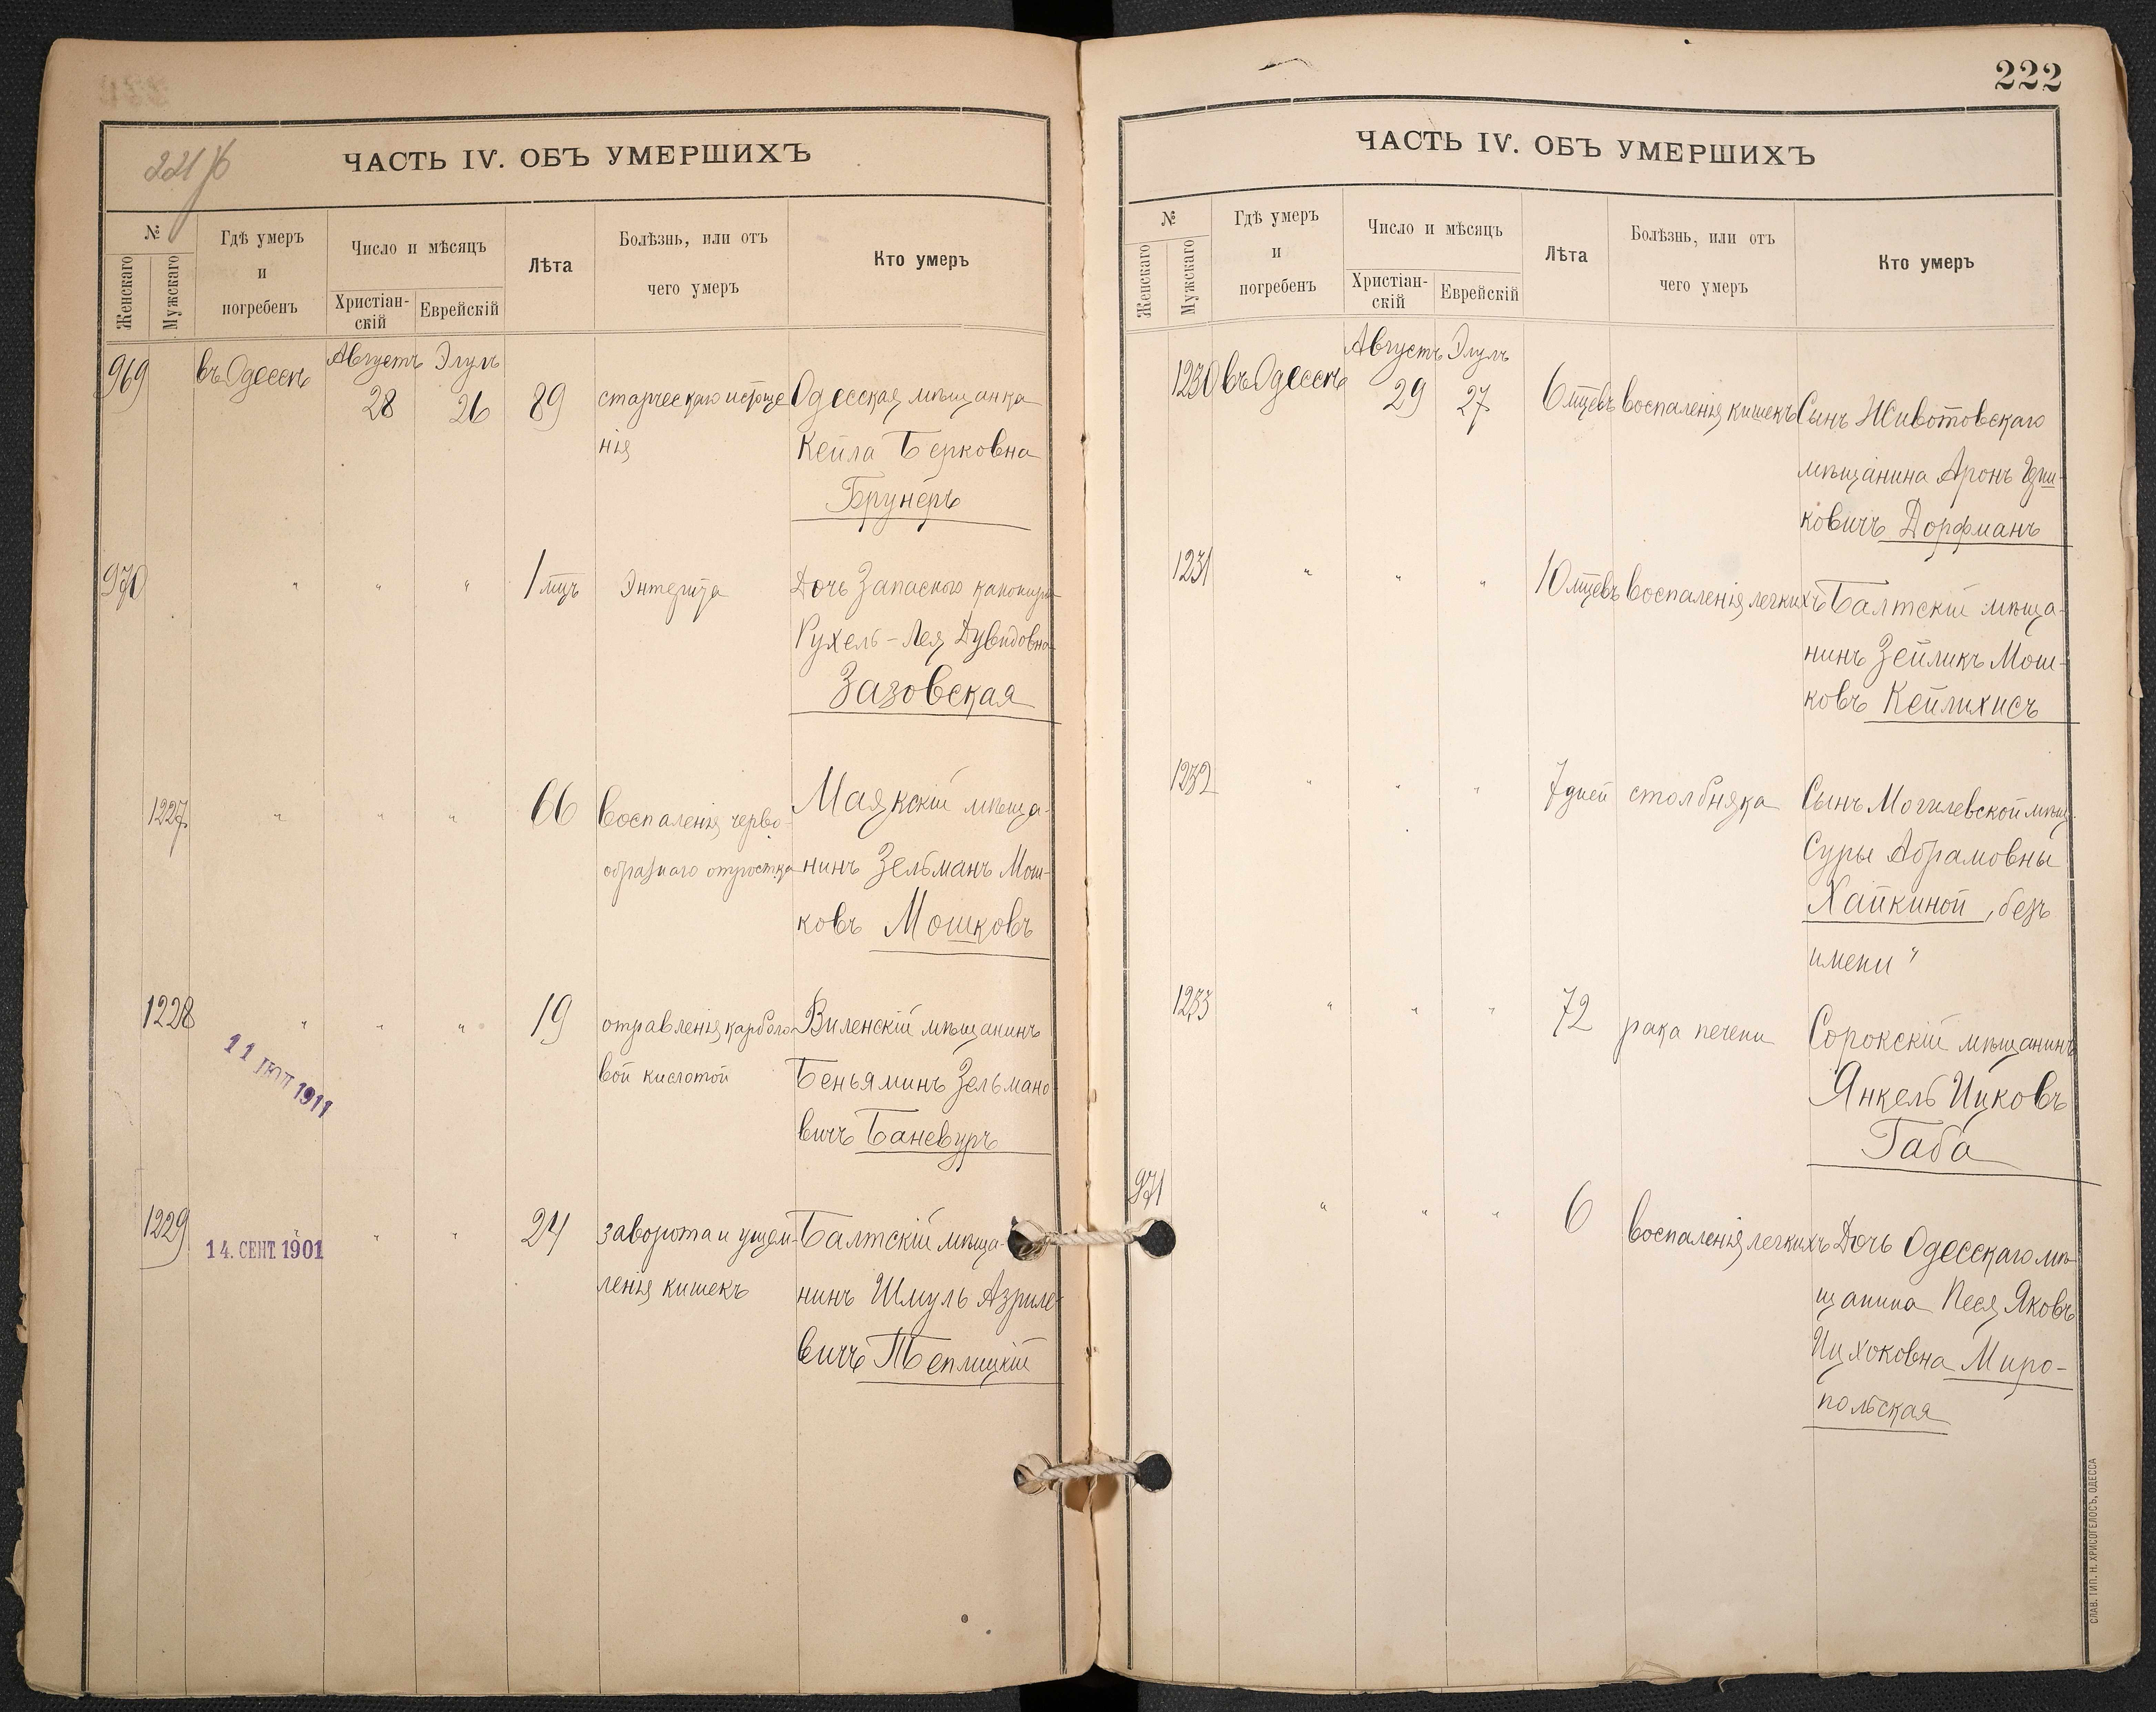 221 об
ЧАСТЬ IV. ОБЪ УМЕРШИХЪ
№
Женскаго
Мужскаго
Гдѣ умеръ
и
погребенъ
Число и мѣсяцъ
Христіан-
скій
Еврейскій
Лѣта
Болѣзнь, или отъ
чего умеръ
Кто умеръ
969
въ Одессѣ
Августъ Элулъ
28 26
89
старческаго истоще
нія
Одесская мѣщанка
Кейла Берковна
Брунеръ
970
" " "
1 мцъ
Энтерита
Дочь Запаснаго
Рухель-Лея Дувидовна
Зазовская
1227
" " "
66
воспаленія черво-
образнаго отростка
Маякскій мѣща-
нинъ Зельманъ Мош-
ковъ Мошковъ
1228
" " "
19
отравленія карболо-
вой кислотой
Виленскій мѣщанинъ
Беньяминъ Зельмано-
вичъ Баневуръ
11 ІЮЛ 1911
1229
" " "
14. СЕНТ. 1901
24
заворота и ущем-
ленія кишекъ
Балтскій мѣща-
нинъ Шмуль Азриле-
вичъ Теплицкій
222
ЧАСТЬ IV. ОБЪ УМЕРШИХЪ
№
Женскаго
Мужскаго
Гдѣ умеръ
и
погребенъ
Число и мѣсяцъ
Христіан-
скій
Еврейскій
Лѣта
Болѣзнь, или отъ
чего умеръ
Кто умеръ
1230
въ Одессѣ
Августъ Элулъ
29 27
6 мцевъ
воспаленія кишекъ
Сынъ Животовскаго
мѣщанина Аронъ Иц-
ковичъ Дорфманъ
1231
" " "
10 мцевъ
воспаленія легкихъ
Балтскій мѣща-
нинъ Зейликъ Мош-
ковъ Кейлихисъ
1232
" " "
7 дней
столбняка
Сынъ Могилевской мѣщ.
Суры Абрамовны
Хайкиной, безъ
имени "
1233
" " "
72
рака печени
Сорокскій мѣщанинъ
Янкель Ицковъ
Габа
971
" " "
6
воспаленія легкихъ
Дочь Одесскаго мѣ-
щанина Песя Яковъ
Ицхоковна Миро-
польская
СЛАВ. ТИП. Н. ХРИСОГЕЛОСЪ, ОДЕССА